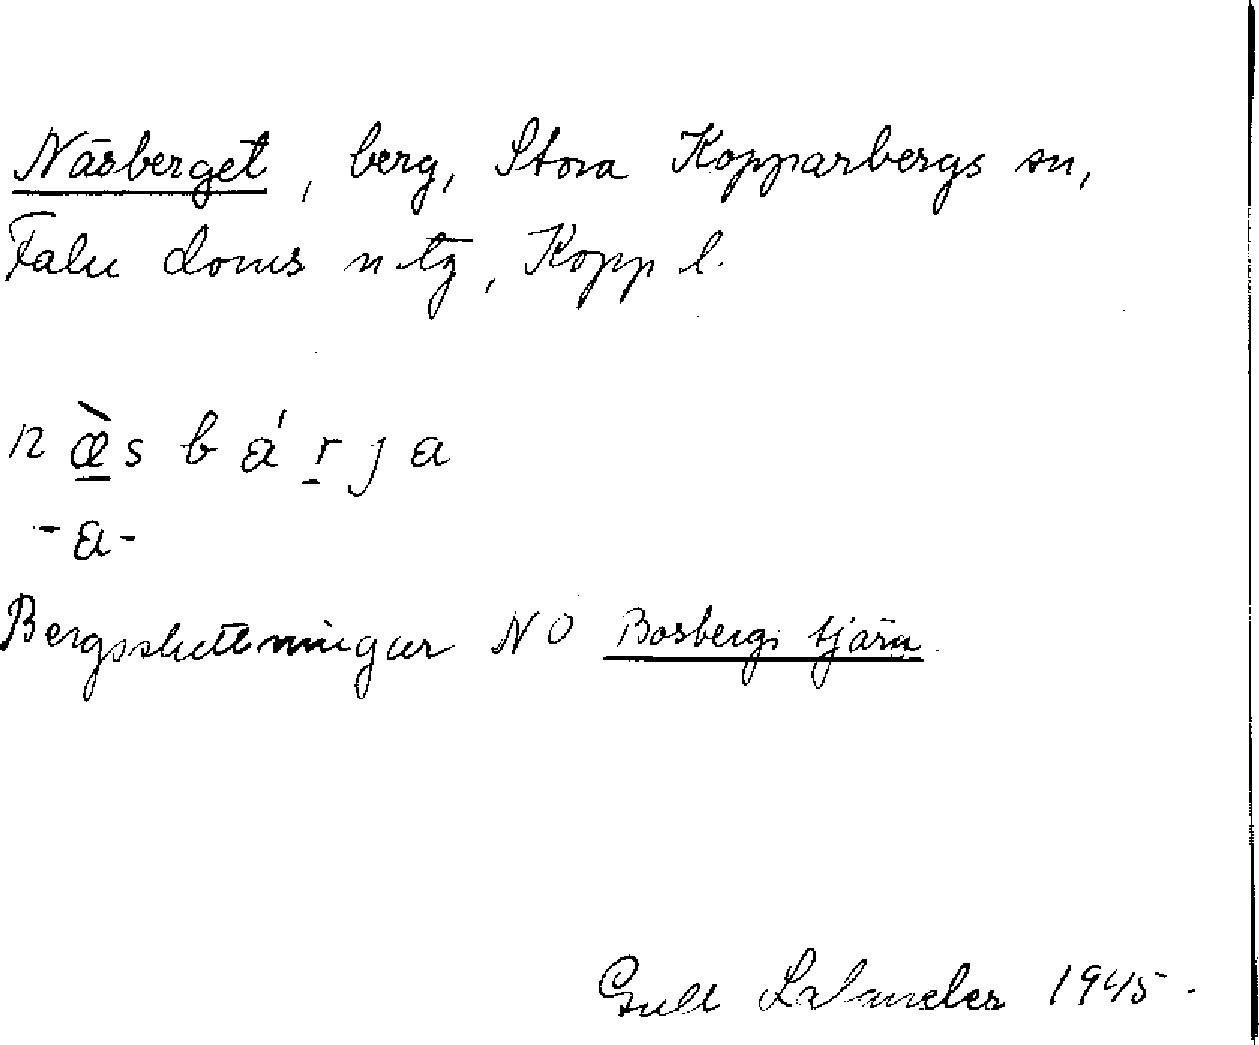 Näsberget, berg, Stora Kopparbergs sn,
Falu doms ntg, Kopp l.
n æ̀ s b á r j a
-a-
Bergssluttningar NO Bosbergs tjärn.
1945.